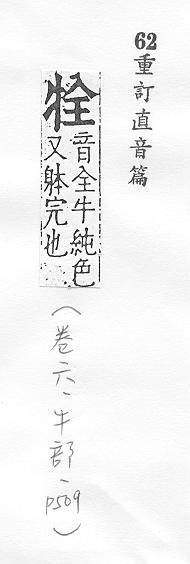 62重訂直音篇
牷
音全牛純色
又躰完也
（卷六、牛部、p509）